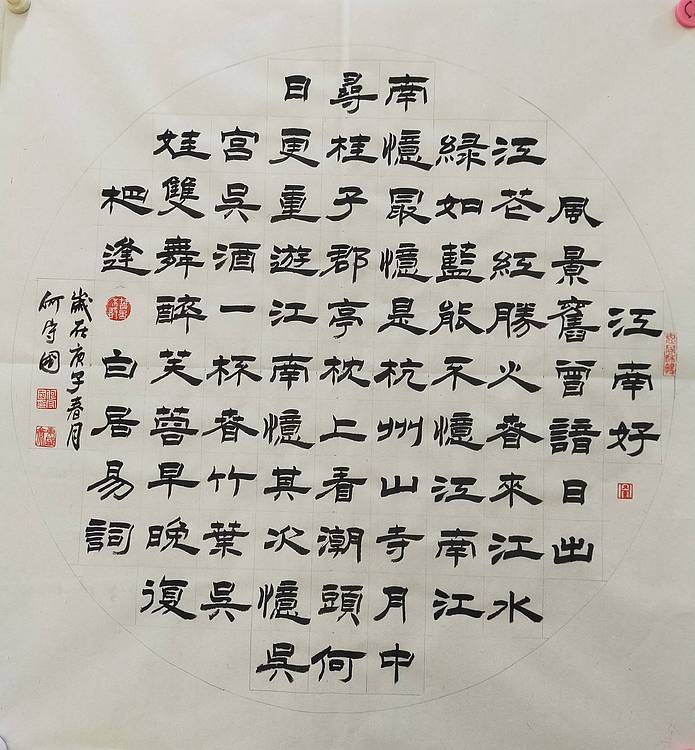 江南好
風景舊曾諳日出
江花紅勝火春來江水
綠如藍能不憶江南江
南憶最憶是杭州山寺月中
尋桂子郡亭枕上看潮頭何
日更重遊江南憶其次憶吳
宮吳酒一杯春竹葉吳
娃雙舞醉芙蓉早晚復
相逢 白居易詞
歲在庚子春月
何守國